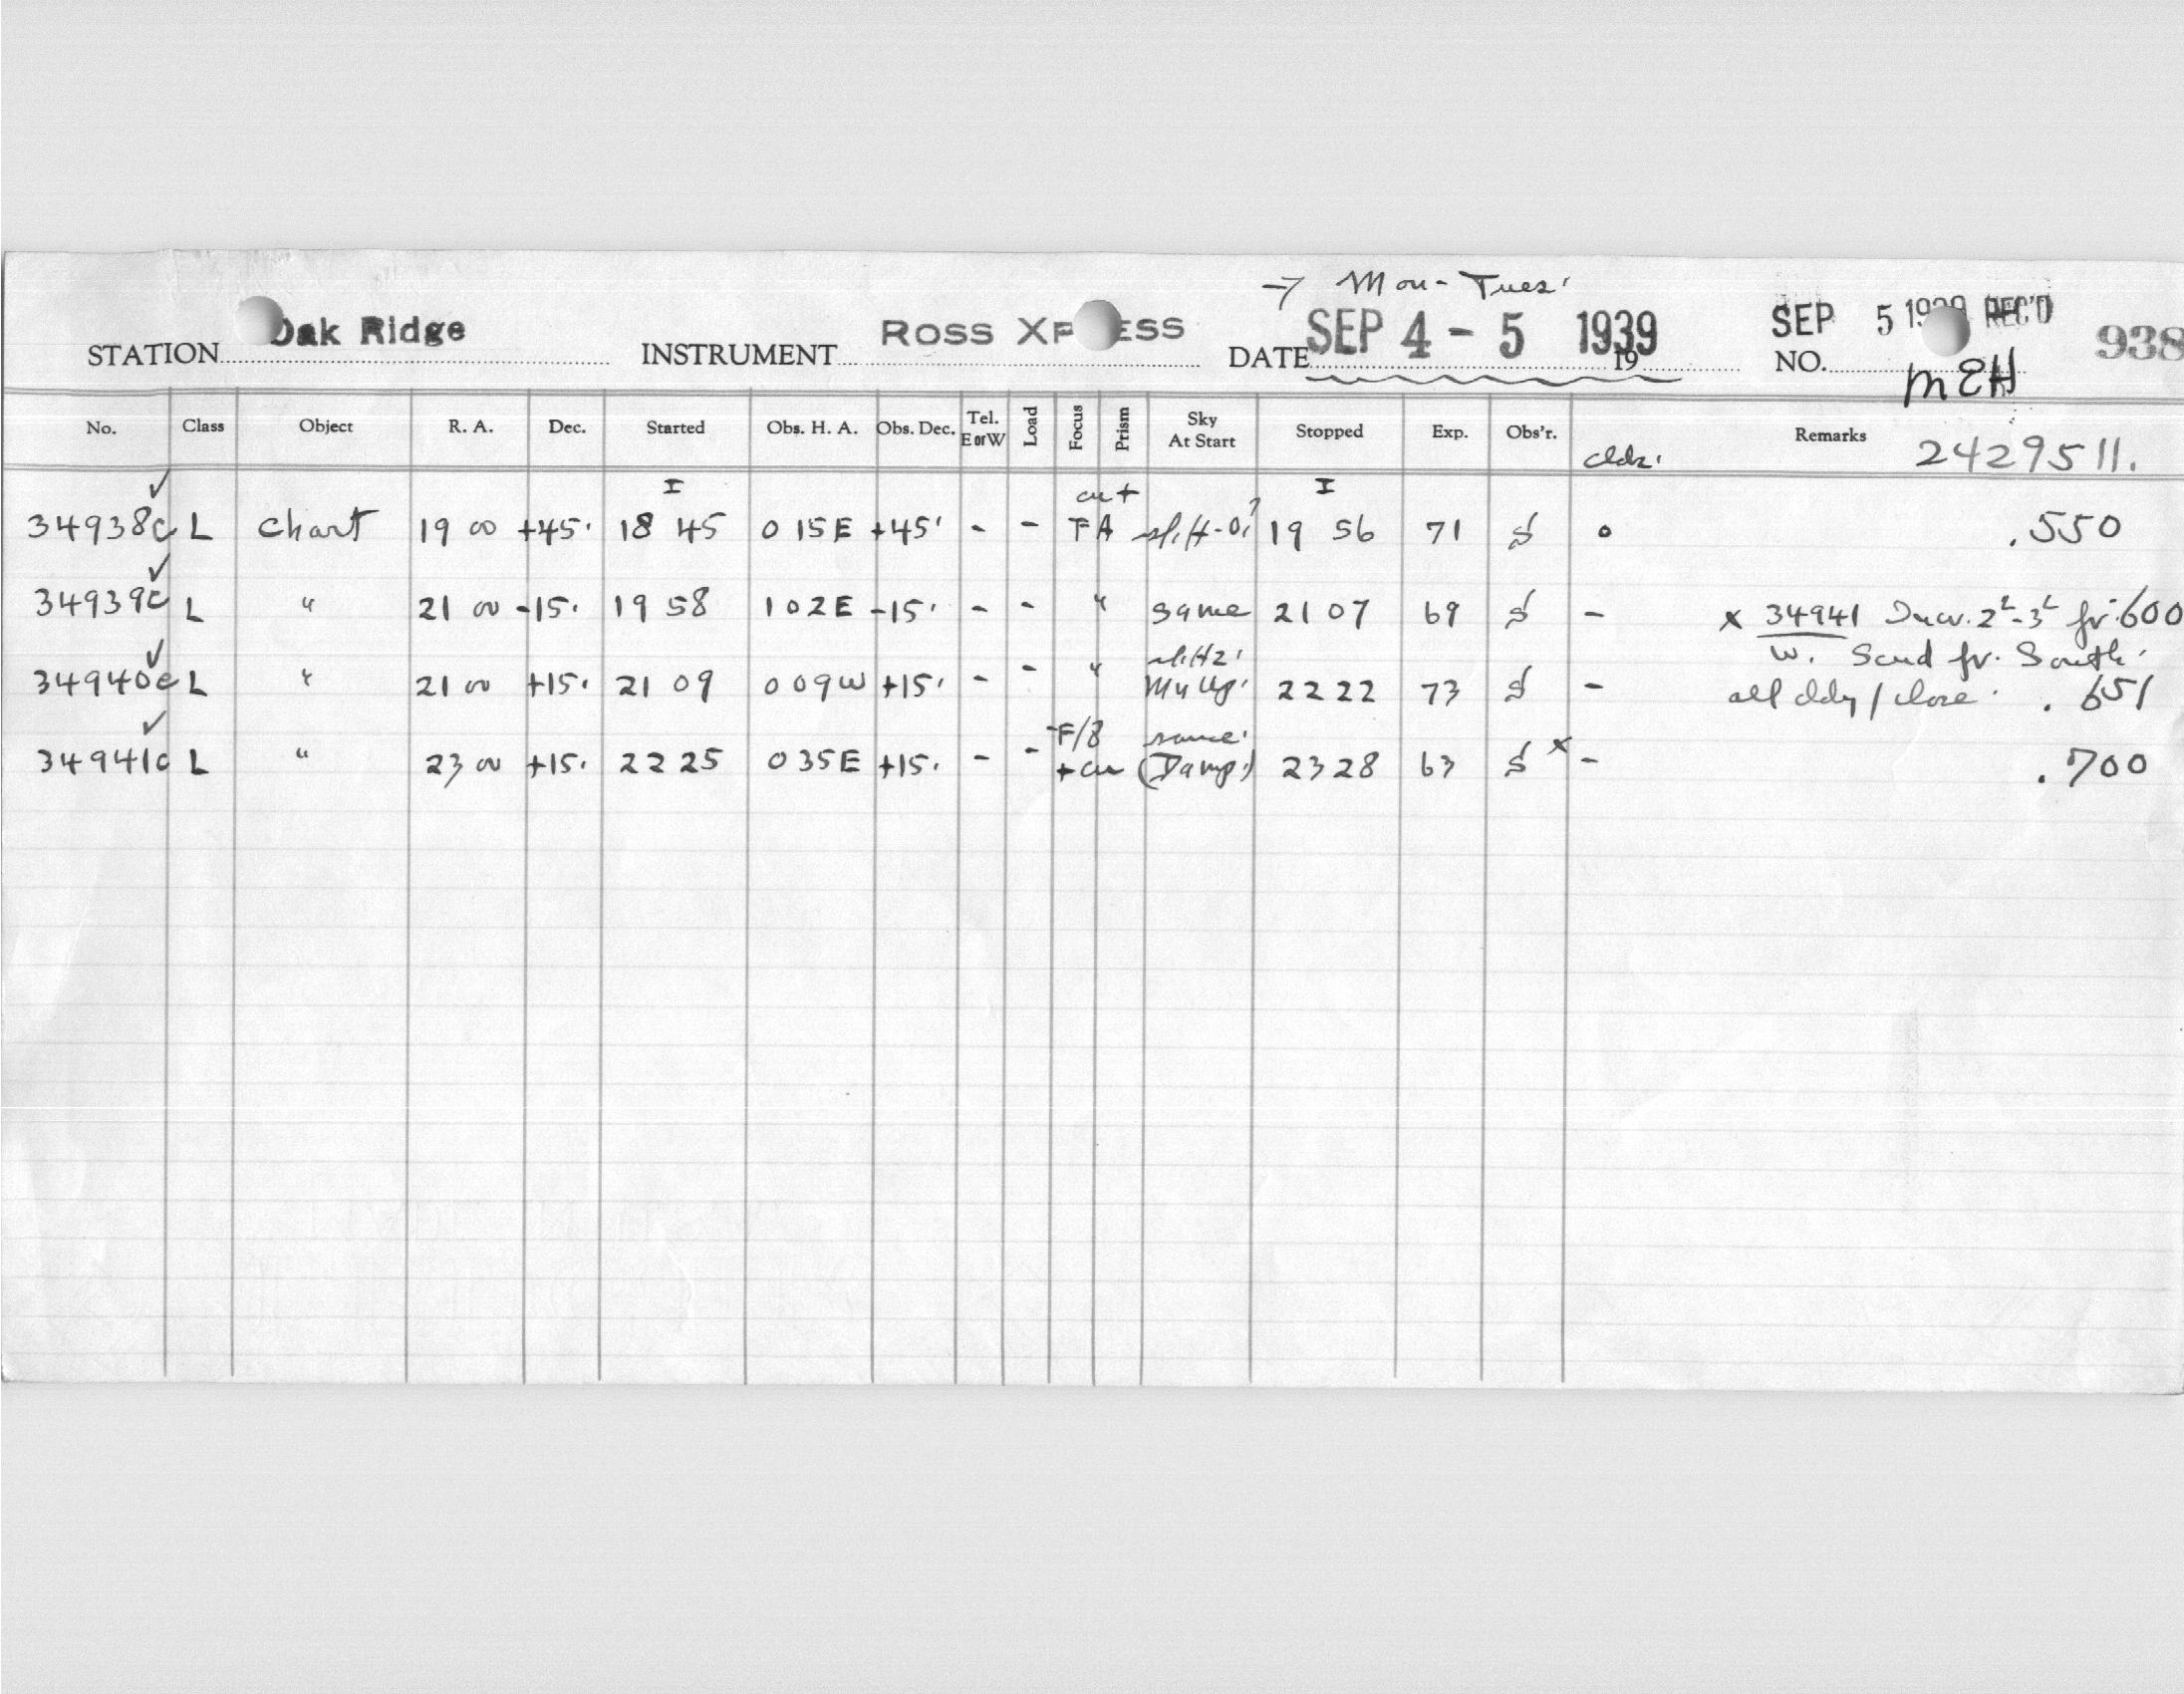 → Mon - Tues.
STATION Oak Ridge INSTRUMENT ROSS XP ESS DATE SEP 4 - 5 1939 19 SEP 5 1939 REC'D NO. 938
MEH
No. Class Object R. A. Dec. Started Obs. H. A. Obs. Dec. Tel. E or W Load Focus Prism Sky At Start Stopped Exp. Obs'r. Remarks 2429511.
✓ I cu + I
34938c L Chart 19 00 +45. 18 45 0 15E +45' - - FA 19 56 71 S o .550
✓
34939c L " 21 00 -15. 19 58 1 02E -15. - - " same 21 07 69 S - x 34941 2 - 3 fr. .600
✓ W. Scud fr. South.
34940c L " 21 00 +15. 21 09 0 09W +15. - - " 22 22 73 S - all cldy / close. .651
✓ F/8 same.
34941c L " 23 00 +15. 22 25 0 35E +15. - - + cu (Damp.) 23 28 63 S x - .700